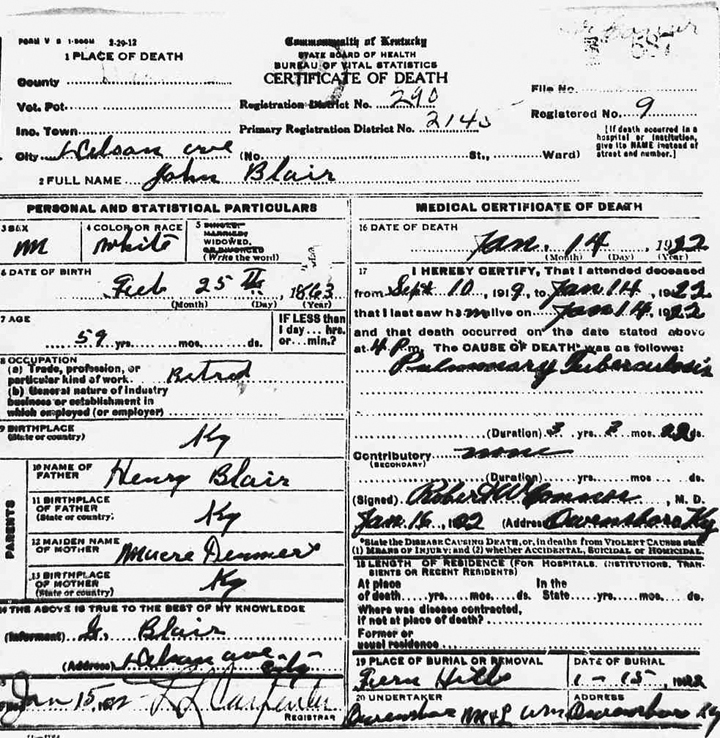 FORM V S 1-500M 2-29-12
Commonwealth of Kentucky
STATE BOARD OF HEALTH
BUREAU OF VITAL STATISTICS
CERTIFICATE OF DEATH
1 PLACE OF DEATH
County
Vot. Pct.
Inc. Town
City Wilson ave (No. St., Ward)
Registration District No. 290
Primary Registration District No. 2145
File No.
Registered No. 9
[If death occurred in a
hospital or institution,
give its NAME instead of
street and number.]
2 FULL NAME John Blair
PERSONAL AND STATISTICAL PARTICULARS
3 SEX
m
4 COLOR OR RACE
White
5 SINGLE,
MARRIED,
WIDOWED,
OR DIVORCED
(Write the word)
6 DATE OF BIRTH
Feb 25th 1863
(Month) (Day) (Year)
7 AGE
59 yrs. mos. ds.
IF LESS than
1 day... hrs.
or... min.?
8 OCCUPATION
(a) Trade, profession, or
particular kind of work
(b) General nature of industry
business or establishment in
which employed (or employer)
9 BIRTHPLACE
(State or country)
Ky
PARENTS
10 NAME OF
FATHER
Henry Blair
11 BIRTHPLACE
OF FATHER
(State or country)
Ky
12 MAIDEN NAME
OF MOTHER
13 BIRTHPLACE
OF MOTHER
(State or country)
Ky
14 THE ABOVE IS TRUE TO THE BEST OF MY KNOWLEDGE
(Informant) Blair
(Address) Wilson ave city
Jan 15, 22 Carpenter
REGISTRAR
MEDICAL CERTIFICATE OF DEATH
16 DATE OF DEATH
Jan. 14 1922
(Month) (Day) (Year)
17 I HEREBY CERTIFY, That I attended deceased
from Sept 10, 1919, to Jan 14, 1922
that I last saw him alive on Jan 14, 1922
and that death occurred on the date stated above
at 4 P.m. The CAUSE OF DEATH was as follows:
Pulmonary Tuberculosis
(Duration) 3 yrs. 2 mos. 22 ds.
Contributory none
(SECONDARY)
(Duration) yrs. mos. ds.
(Signed) Robert W , M. D.
Jan 16, 1922 (Address) Owensboro Ky
*State the DISEASE CAUSING DEATH, or, in deaths from VIOLENT CAUSES state
(1) MEANS OF INJURY; and (2) whether ACCIDENTAL, SUICIDAL or HOMICIDAL.
18 LENGTH OF RESIDENCE (FOR HOSPITALS, INSTITUTIONS, TRAN-
SIENTS OR RECENT RESIDENTS)
At place In the
of death yrs. mos. ds. State yrs. mos. ds.
Where was disease contracted,
if not at place of death?
Former or
usual residence
19 PLACE OF BURIAL OR REMOVAL
Fern Hill
DATE OF BURIAL
1-15, 1922
20 UNDERTAKER
Owensboro
ADDRESS
Owensboro Ky